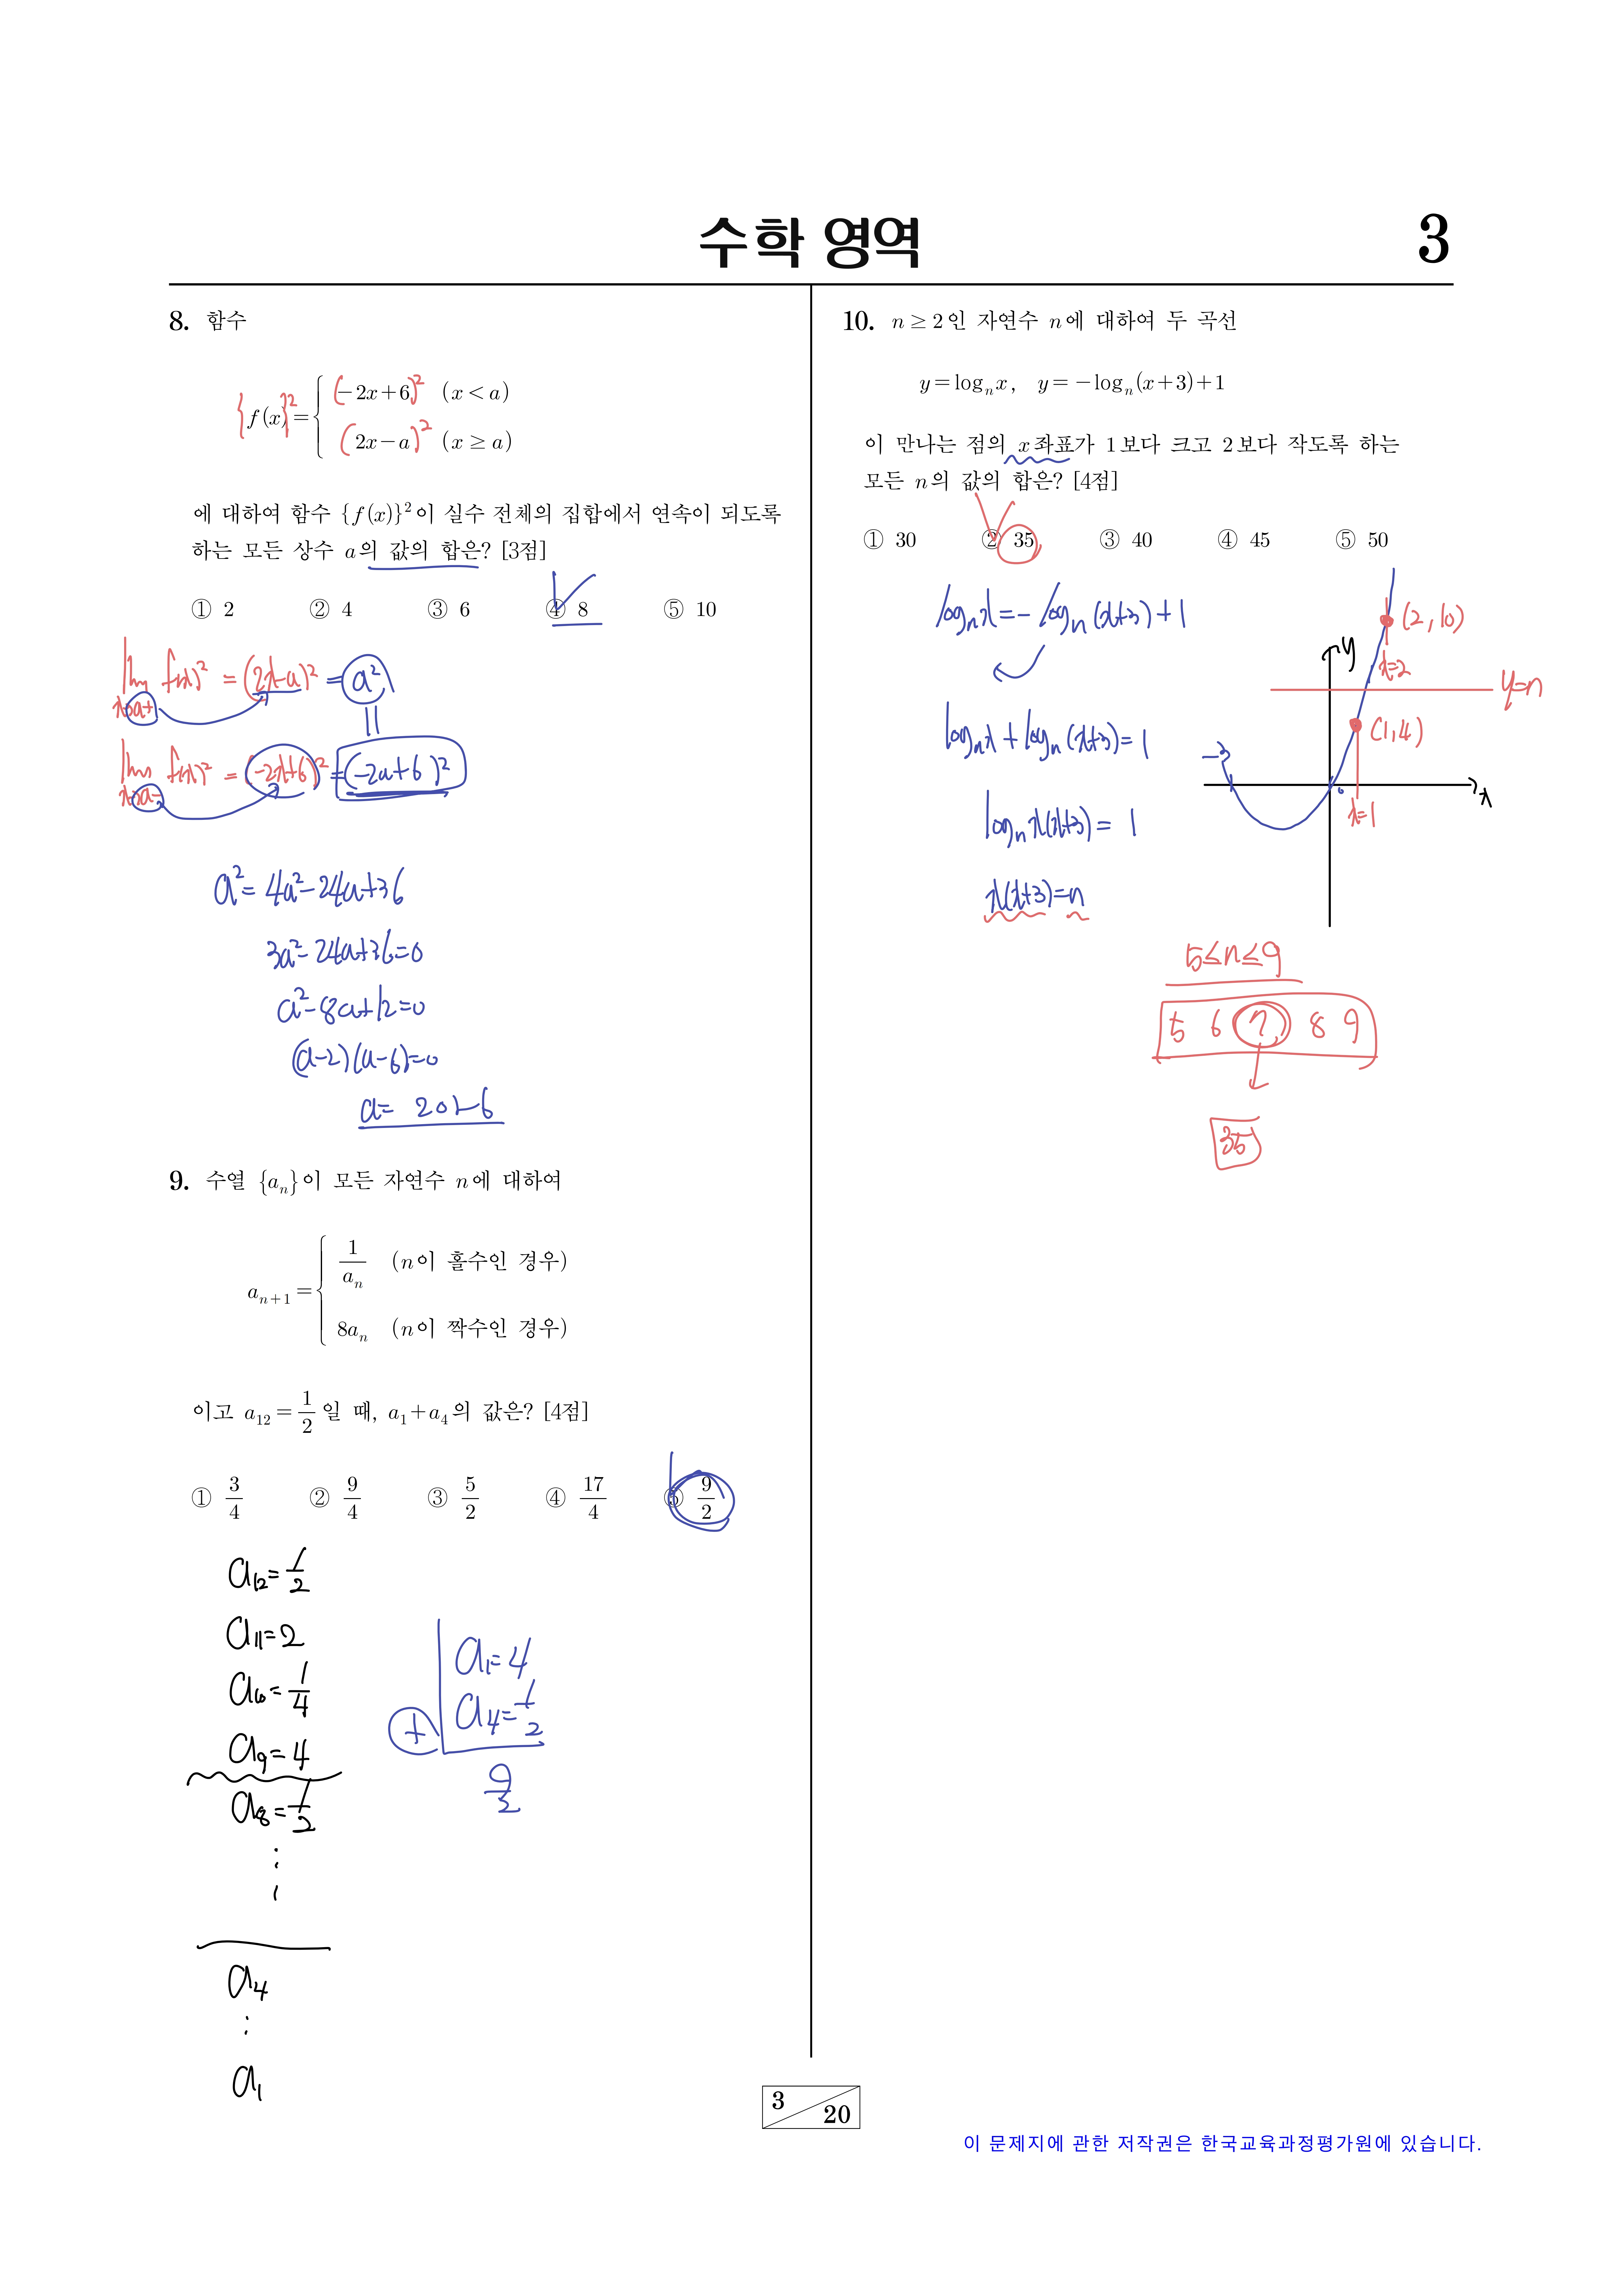 수학 영역
3
8. 함수
{f(x)}² = { (-2x+6)² (x < a)
(2x-a)² (x ≥ a)
에 대하여 함수 {f(x)}²이 실수 전체의 집합에서 연속이 되도록
하는 모든 상수 a의 값의 합은? [3점]
① 2 ② 4 ③ 6 ④ 8 ⑤ 10
lim x→a+ f(x)² = (2x-a)² = a²
||
lim x→a- f(x)² = (-2x+6)² = (-2a+6)²
a² = 4a²-24a+36
3a²-24a+36=0
a²-8a+12=0
(a-2)(a-6)=0
a= 2 or 6
9. 수열 {aₙ}이 모든 자연수 n에 대하여
aₙ₊₁ = { 1/aₙ (n이 홀수인 경우)
8aₙ (n이 짝수인 경우)
이고 a₁₂ = 1/2 일 때, a₁+a₄의 값은? [4점]
① 3/4 ② 9/4 ③ 5/2 ④ 17/4 ⑤ 9/2
a₁₂=1/2
a₁₁=2
a₁₀=1/4
a₉=4
a₈=1/2
a₄
a₁
a₁=4
+ a₄=1/2
9/2
10. n ≥ 2인 자연수 n에 대하여 두 곡선
y = logₙx, y = -logₙ(x+3)+1
이 만나는 점의 x좌표가 1보다 크고 2보다 작도록 하는
모든 n의 값의 합은? [4점]
① 30 ② 35 ③ 40 ④ 45 ⑤ 50
logₙx = -logₙ(x+3)+1
logₙx + logₙ(x+3) = 1
logₙx(x+3) = 1
x(x+3)=n
y
(2, 10)
x=2
y=n
(1,4)
-3
0
x
x=1
5≤n≤9
5 6 7 8 9
35
3 20
이 문제지에 관한 저작권은 한국교육과정평가원에 있습니다.